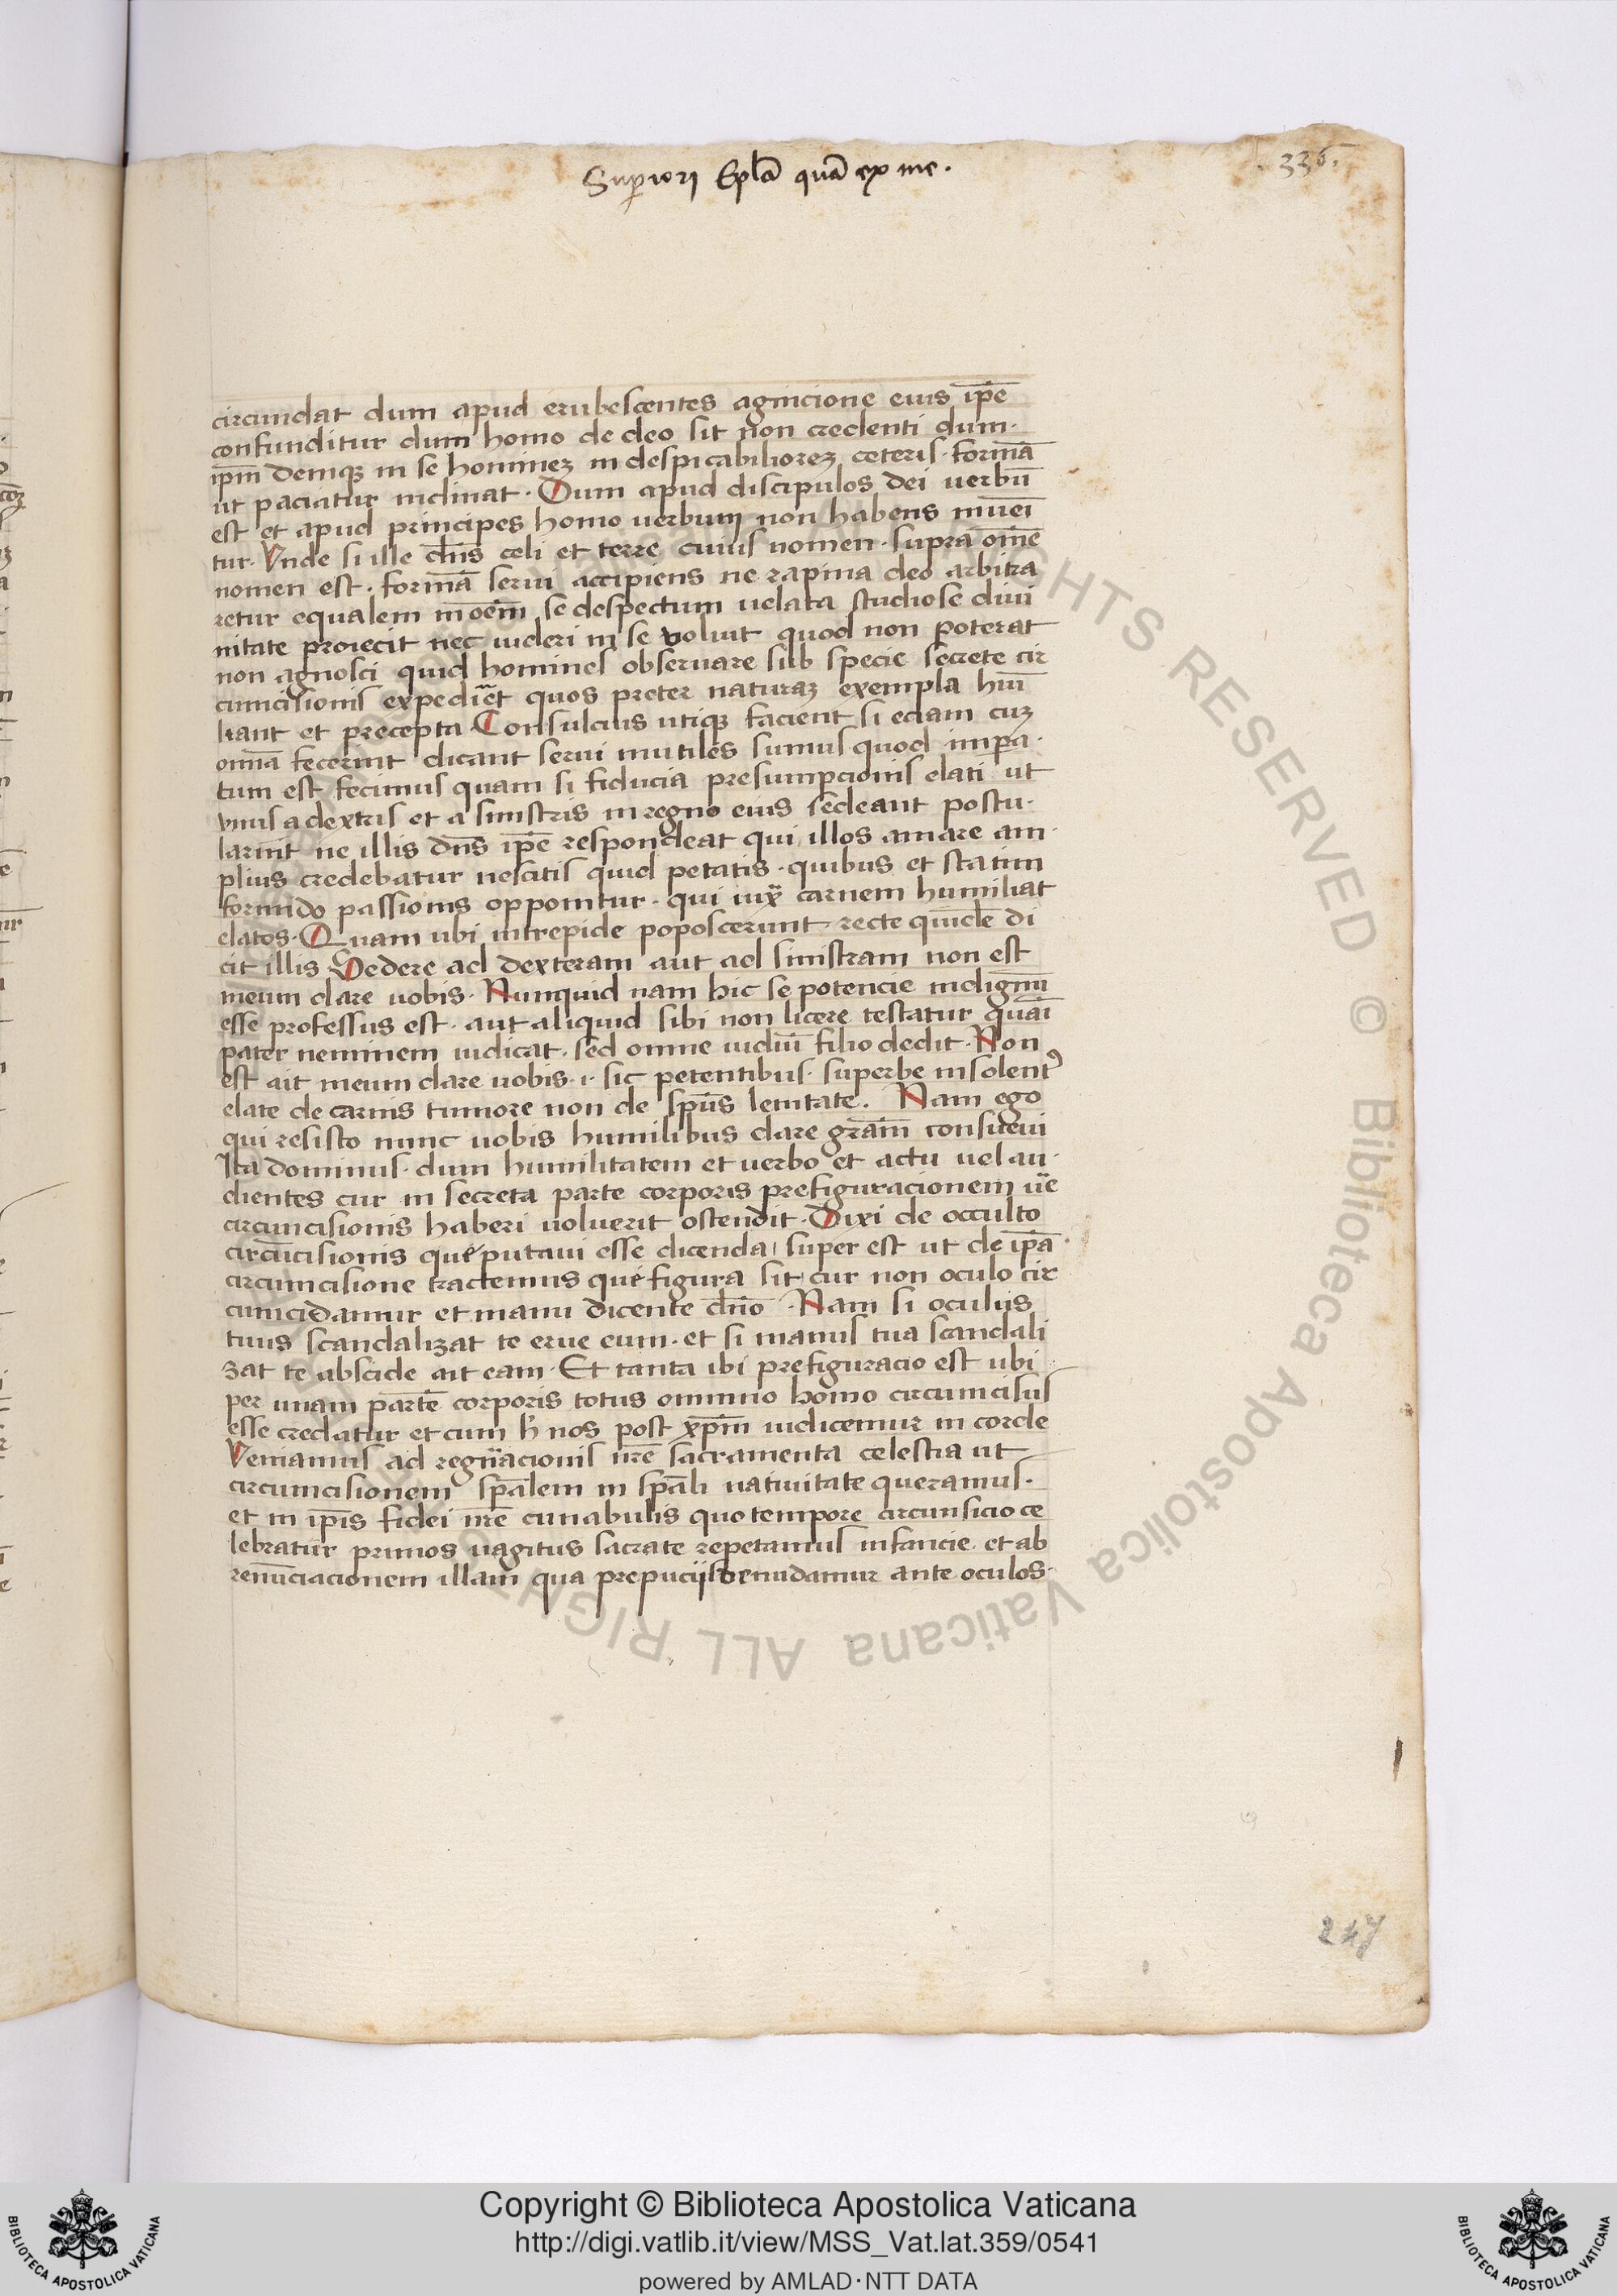 Superiori Epłā quā ex me.
. 336.
circundat dum apud erubescentes agnicione eius ip̄e
confunditur dum homo de deo sit non credenti dum·
ip̄m demq; in se hominez in despicabiliorez ceteris· formā
ut paciatur inclinat· Dum apud discipulos dei uerbū
est et apud principes homo uerbum non habens inueī
tur· Vnde si ille dn̄s celi et terre cuius nomen· supra om̄e
nomen est· formā serui accipiens ne rapina deo arbitra
retur equalem in oem̄ se despectum uelata studiose diui
nitate proiecit nec uideri in se voluit quod non poterat
non agnosci quid homines obseruare sub specie secrete cir
cumcisionis expediret quos preter naturaz exempla hui᷃
liant et precepta Consulcius utiq; facient si eciam cuz
omn̄a fecerint dicant serui inutiles sumus quod impera·
tum est fecimus quam si fiducia presumpcionis elati ut
vnus a dextris et a sinistris in regno eius sedeant postu·
larint ne illis dn̄s ip̄e respondeat qui illos amare am·
plius credebatur nescitis quid petatis· quibus et statim
formido passionis opponitur· qui iux̄ carnem humiliat
elatos· Quam ubi intrepide poposcerunt recte quidē di
cit illis Sedere ad dexteram aut ad sinistram non est
meum dare uobis· Nunquid nam hic se potencie indignū
esse professus est· aut aliquid sibi non licere testatur quāī
pater neminem iudicat· sed omne iudiū filio dedit· Non
est ait meum dare uobis· i· sic petentibus· superbe insolent᷒
elate de carnis tumore non de sp̄us lenitate. Nam ego
qui resisto nunc uobis humilibus dare gra͞m consueui
Ita dominus· dum humilitatem et uerbo et actu uel au·
dientes cur in secreta parte corporis prefiguracionem ūe
circumcisionis haberi uoluerit ostendit· Dixi de occulto
circūcisionis que putaui esse dicenda super est ut de ip̄a·
circumcisione tractemus que figura sit cur non oculo cir
cumcidamur et manu dicente dn̄o· Nam si oculus
tuus scandalizat te erue eum· et si manus tua scandali
zat te abscide ait eam· Et tanta ibi prefiguracio est ubi
per unam partē corporis totus omnino homo circumcisus
esse credatur et cum h̄ nos post xp̄m iudicemur in corde
Veniamus ad regn̄acionis nr̄e sacramenta celestia ut
circumcisionem sp̄alem in sp̄ali natiuitate queramus·
et in ip̄is fidei nr̄e cunabulis quo tempore circumsicio ce
lebratur primos uagitus sacrate repetamus infancie et ab
renūciacionem illam qua prepucijs denudamur ante oculos·
247
ALL RIGHTS RESERVED © Biblioteca Apostolica Vaticana ALL RIGHTS
Copyright © Biblioteca Apostolica Vaticana
http://digi.vatlib.it/view/MSS_Vat.lat.359/0541
powered by AMLAD·NTT DATA
BIBLIOTECA APOSTOLICA VATICANA
BIBLIOTECA APOSTOLICA VATICANA